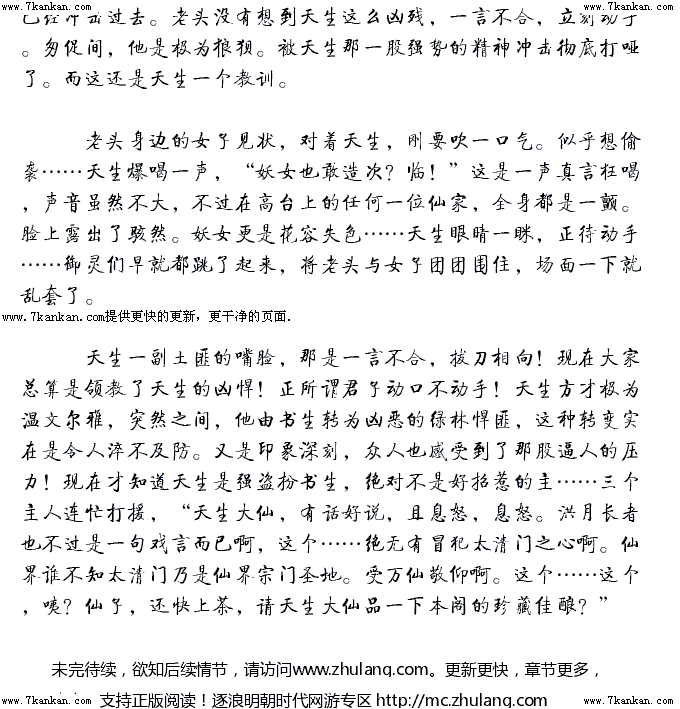 www.7kankan.com www.7kankan.com
已经冲击过去。老头没有想到天生这么凶残，一言不合，立刻动手
。匆促间，他是极为狼狈。被天生那一股强势的精神冲击彻底打哑
了。而这还是天生一个教训。
老头身边的女子见状，对着天生，刚要吹一口气。似乎想偷
袭……天生爆喝一声，“妖女也敢造次？临！”这是一声真言狂喝
，声音虽然不大，不过在高台上的任何一位仙家，全身都是一颤。
脸上露出了骇然。妖女更是花容失色……天生眼睛一眯，正待动手
……御灵们早就都跳了起来，将老头与女子团团围住，场面一下就
乱套了。
www.7kankan.com提供更快的更新，更干净的页面.
天生一副土匪的嘴脸，那是一言不合，拔刀相向！现在大家
总算是领教了天生的凶悍！正所谓君子动口不动手！天生方才极为
温文尔雅，突然之间，他由书生转为凶恶的绿林悍匪，这种转变实
在是令人淬不及防。又是印象深刻，众人也感受到了那股逼人的压
力！现在才知道天生是强盗扮书生，绝对不是好招惹的主……三个
主人连忙打援，“天生大仙，有话好说，且息怒，息怒。洪月长者
也不过是一句戏言而已啊，这个……绝无有冒犯太清门之心啊。仙
界谁不知太清门乃是仙界宗门圣地。受万仙敬仰啊。这个……这个
，咦？仙子，还快上茶，请天生大仙品一下本阁的珍藏佳酿？”
未完待续，欲知后续情节，请访问www.zhulang.com。更新更快，章节更多，
www.7kankan.com 支持正版阅读！逐浪明朝时代网游专区 http://mc.zhulang.com www.7kankan.com